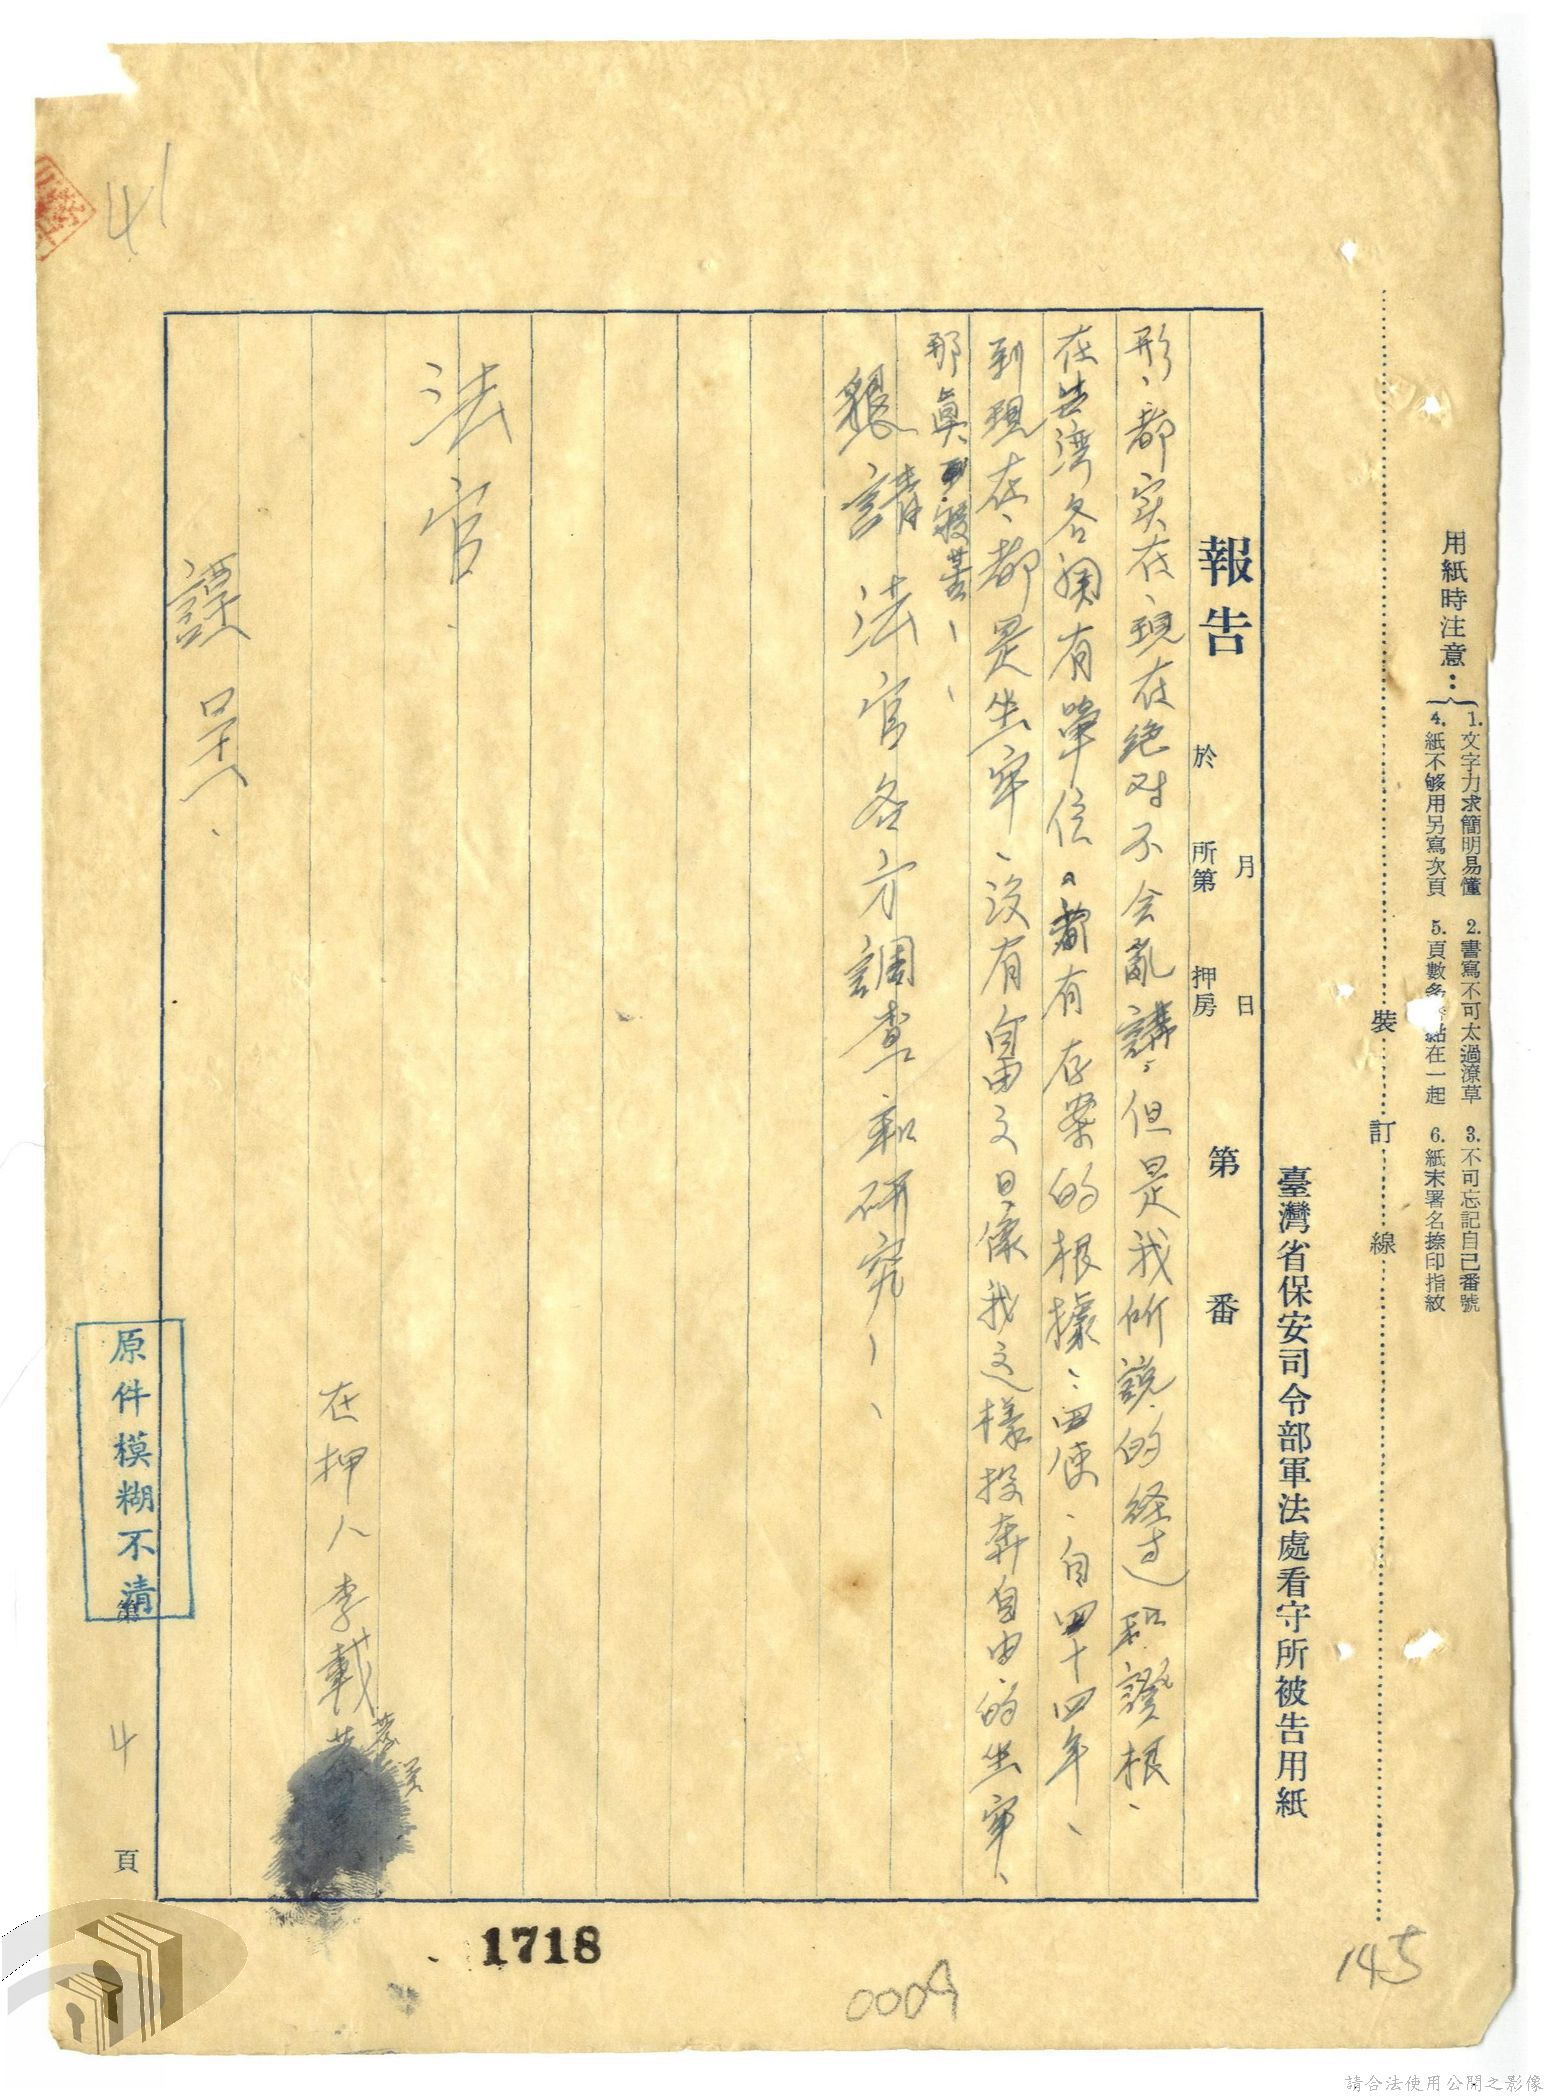 用紙時注意：
1. 文字力求簡明易懂 2. 書寫不可太過潦草 3. 不可忘記自己番號
4. 紙不够用另寫次頁 5. 頁數多 點在一起 6. 紙末署名捺印指紋
裝 訂 線
臺灣省保安司令部軍法處看守所被告用紙
報告 於 月 日
所第 押房 第 番
形、都実在、現在絶対不会亂講、但是我所説的経过和證根、
在台湾各関有單位、都有存案的根據、使、自四十四年、
到現在、都是坐牢、没有自由之日、像我这樣投奔自由的坐牢、
那真
懇請 法官各方調查和研究、
法官
在押人李載
謹呈
原件模糊不清
第 4 頁
41
1718
0009
145
請合法使用公開之影像